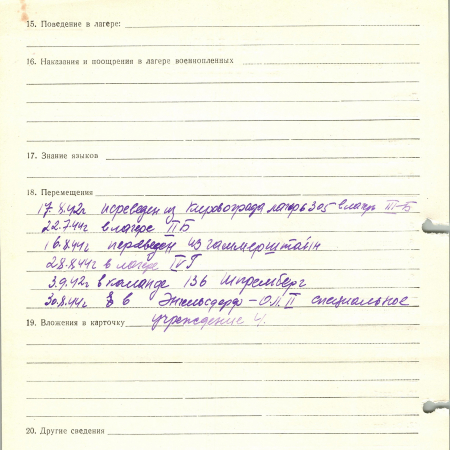 15. Поведение в лагере:
16. Наказания и поощрения в лагере военнопленных
17. Знание языков
18. Перемещения
17.8.42г переведен из Кировограда лагерь 305 в лагерь III-Б
22.7.44г в лагере II Б
16.8.44г переведен из Гаммерштайн
28.8.44г в лагере IV Г
3.9.42г в команде 136 Шпремберг
30.8.44г в - ОЛ II специальное
19. Вложения в карточку
учреждение 4.
20. Другие сведения